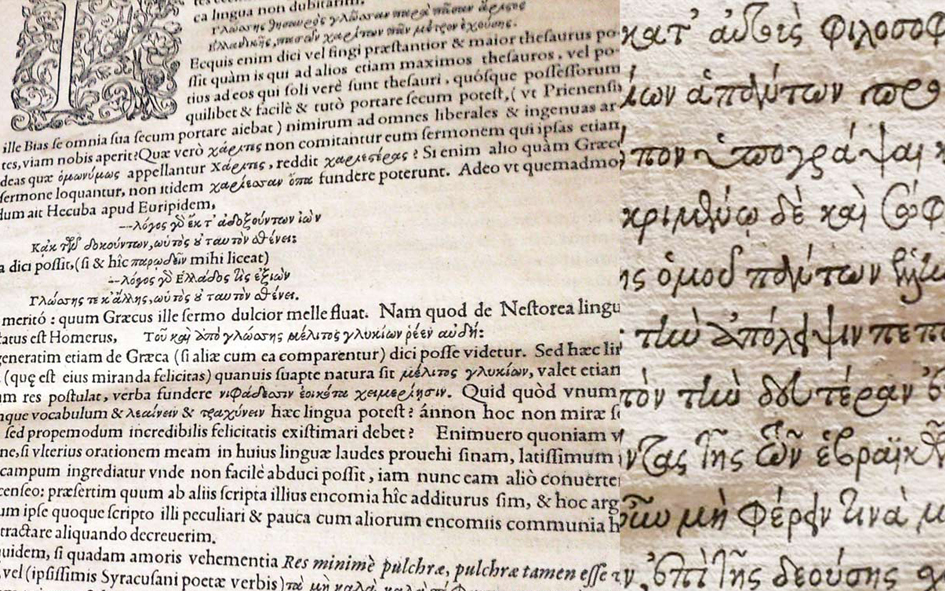 ca lingua non dubitarim.
Γλώσσης θησαυρὸς γλῶσσαν παρὰ πᾶσιν ἀρίστης
Ἑλλαδικῆς, πασῶν χαρίτων πᾶν μέτρον ἐχούσης.
Ecquis enim dici vel fingi præstantior & maior thesaurus po
ssit quàm is qui ad alios etiam maximos thesauros, vel po
tius ad eos qui soli verè sunt thesauri, quósque possessorum
quilibet & facilè & tutò portare secum potest, (vt Prienensis
ille Bias se omnia sua secum portare aiebat) nimirum ad omnes liberales & ingenuas ar
tes, viam nobis aperit? Quæ verò χάριτες non comitantur eum sermonem qui ipsas etiam
deas quæ ὁμωνύμως appellantur Χάριτες, reddit χαριεστέρας? Si enim alio quàm Græco
sermone loquantur, non itidem χαρίεσσαν ὄπα fundere poterunt. Adeo vt quemadmo
dum ait Hecuba apud Euripidem,
--λόγος γὸ ἔκ τ' ἀδοξούντων ἰὼν
Κἀκ τῶν δοκούντων, αὑτὸς οὐ ταυτὸν σθένει:
a dici possit, (si & hîc παρῳδεῖν mihi liceat)
--λόγος γὸ Ἑλλάδος τις ἐξιὼν
Γλώσσης τε κ' ἄλλης, αὑτὸς οὐ ταυτὸν σθένει.
meritò: quum Græcus ille sermo dulcior melle fluat. Nam quod de Nestorea lingu
tatus est Homerus, Τοῦ καὶ ἀπὸ γλώσσης μέλιτος γλυκίων ῥέεν αὐδή:
generatim etiam de Græca (si aliæ cum ea comparentur) dici posse videtur. Sed hæc lin
(quę est eius miranda felicitas) quanuis suapte natura sit μέλιτος γλυκίων, valet etiam
um res postulat, verba fundere νιφάδεσσιν ἐοικότα χειμερίῃσιν. Quid quòd vnum
nque vocabulum & λεαίνειν & τραχύνειν hæc lingua potest? ánnon hoc non miræ s
sed propemodum incredibilis felicitatis existimari debet? Enimuero quoniam v
ne, si vlterius orationem meam in huius linguæ laudes prouehi sinam, latissimum
campum ingrediatur vnde non facilè abduci possit, iam nunc eam aliò conuerte
censeo: præsertim quum ab aliis scripta illius encomia hîc additurus sim, & hoc arg
um ipse quoque scripto illi peculiari & pauca cum aliorum encomiis communia h
tractare aliquando decreuerim.
uidem, si quadam amoris vehementia Res minimè pulchræ, pulchræ tamen esse
, vel (ipsissimis Syracusani poetæ verbis) τὰ μὴ καλὰ καλὰ
κατ' αὐθις φιλοσοφ
ἀπολύτων προ
πον ὑπογράψαι κ
κριμένῳ δὲ καὶ
ης ὁμοῦ πολύτων
τὴν ἀπόλειψιν πεπ
τὸν τὴν δευτέραν
τῆς τῶν ἑβραϊκῶν
μὴ φέρειν τινὰ μ
ἐπὶ τῆς δεούσης